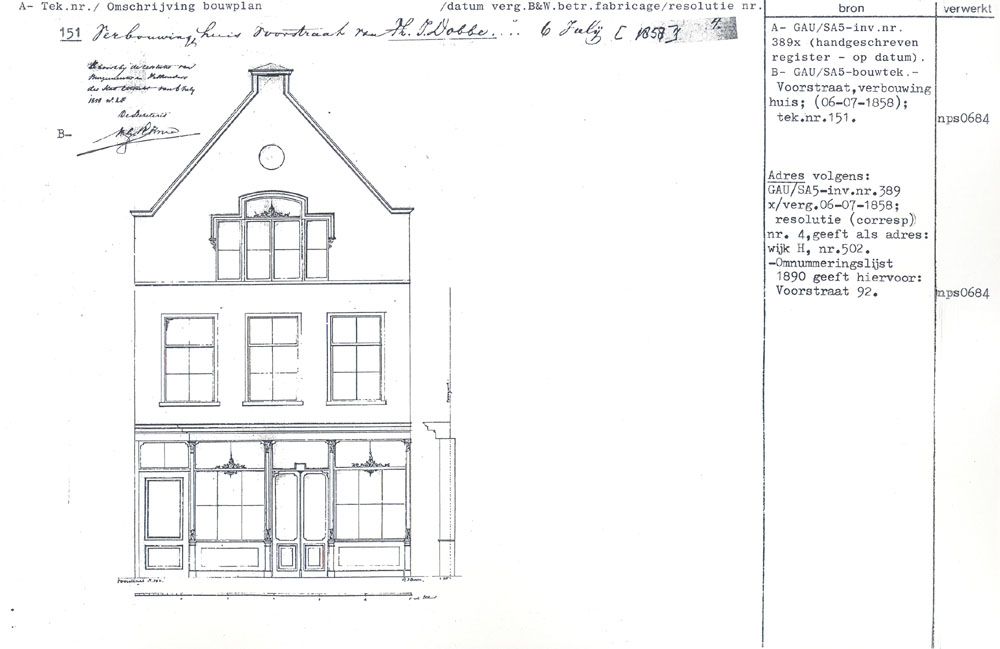 A- Tek.nr./ Omschrijving bouwplan /datum verg.B&W.betr.fabricage/resolutie nr.
bron
verwerkt
151 Verbouwing huis Voorstraat van Th. J. Dobbe. 6 July [1858] 4.
De Secretaris
B-
A- GAU/SA5-inv.nr.
389x (handgeschreven
register - op datum).
B- GAU/SA5-bouwtek.-
Voorstraat,verbouwing
huis; (06-07-1858);
tek.nr.151.
nps0684
Adres volgens:
GAU/SA5-inv.nr.389
x/verg.06-07-1858;
resolutie (corresp)
nr. 4,geeft als adres:
wijk H, nr.502.
-Omnummeringslijst
1890 geeft hiervoor:
Voorstraat 92.
nps0684